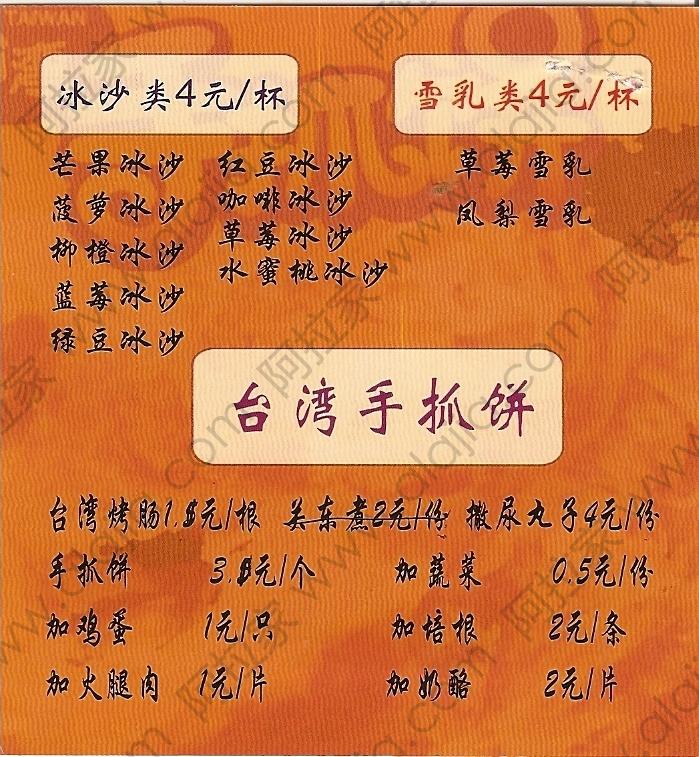 冰沙类4元/杯
雪乳类4元/杯
芒果冰沙 红豆冰沙 草莓雪乳
菠萝冰沙 咖啡冰沙 凤梨雪乳
柳橙冰沙 草莓冰沙
蓝莓冰沙 水蜜桃冰沙
绿豆冰沙
台湾手抓饼
台湾烤肠 元/根 关东煮2元/份 撒尿丸子4元/份
手抓饼 元/个 加蔬菜 0.5元/份
加鸡蛋 1元/只 加培根 2元/条
加火腿肉 1元/片 加奶酪 2元/片
阿拉家 www.alajia.com